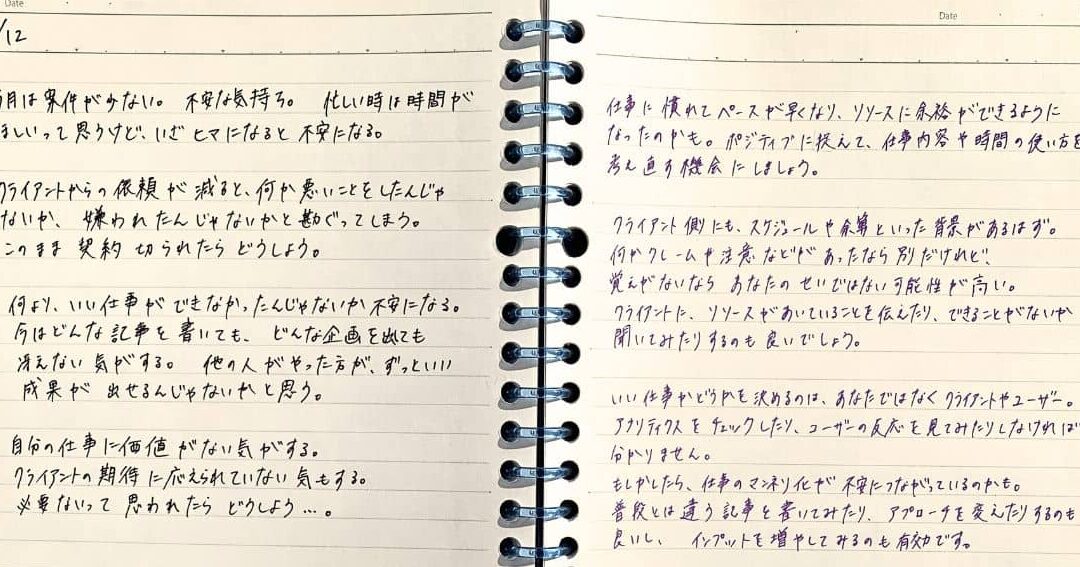 Date
/12
月は案件が少ない。 不安な気持ち。 忙しい時は時間が
ほしいって思うけど、いざ ヒマになると 不安になる。
クライアントからの依頼が減ると、何か悪いことをしたんじゃ
ないか、嫌われたんじゃないかと勘ぐってしまう。
このまま 契約 切られたら どうしよう。
何より、いい仕事ができなかったんじゃないか不安になる。
今はどんな記事を書いても、どんな企画を出しても
冴えない 気がする。 他の人がやった方が、ずっといい
成果が 出せるんじゃないかと思う。
自分の仕事に価値がない気がする。
クライアントの期待に応えられていない気もする。
必要ないって 思われたら どうしよう…。
Date
仕事に慣れてペースが早くなり、リソースに余裕ができるように
なったのかも。ポジティブに捉えて、仕事内容や時間の使い方を
考え直す機会にしましょう。
クライアント側にも、スケジュールや予算といった背景があるはず。
何かクレームや注意などがあったなら別だけれど、
覚えがないなら あなたのせいではない可能性が高い。
クライアントに、リソースがあいていることを伝えたり、できることがないか
聞いてみたりするのも良いでしょう。
いい仕事かどうかを決めるのは、あなたではなくクライアントやユーザー。
アナリティクスをチェックしたり、ユーザーの反応を見てみたりしなければ
分かりません。
もしかしたら、仕事のマンネリ化が不安につながっているのかも。
普段とは違う記事を書いてみたり、アプローチを変えたりするのも
良いし、 インプットを増やしてみるのも有効です。